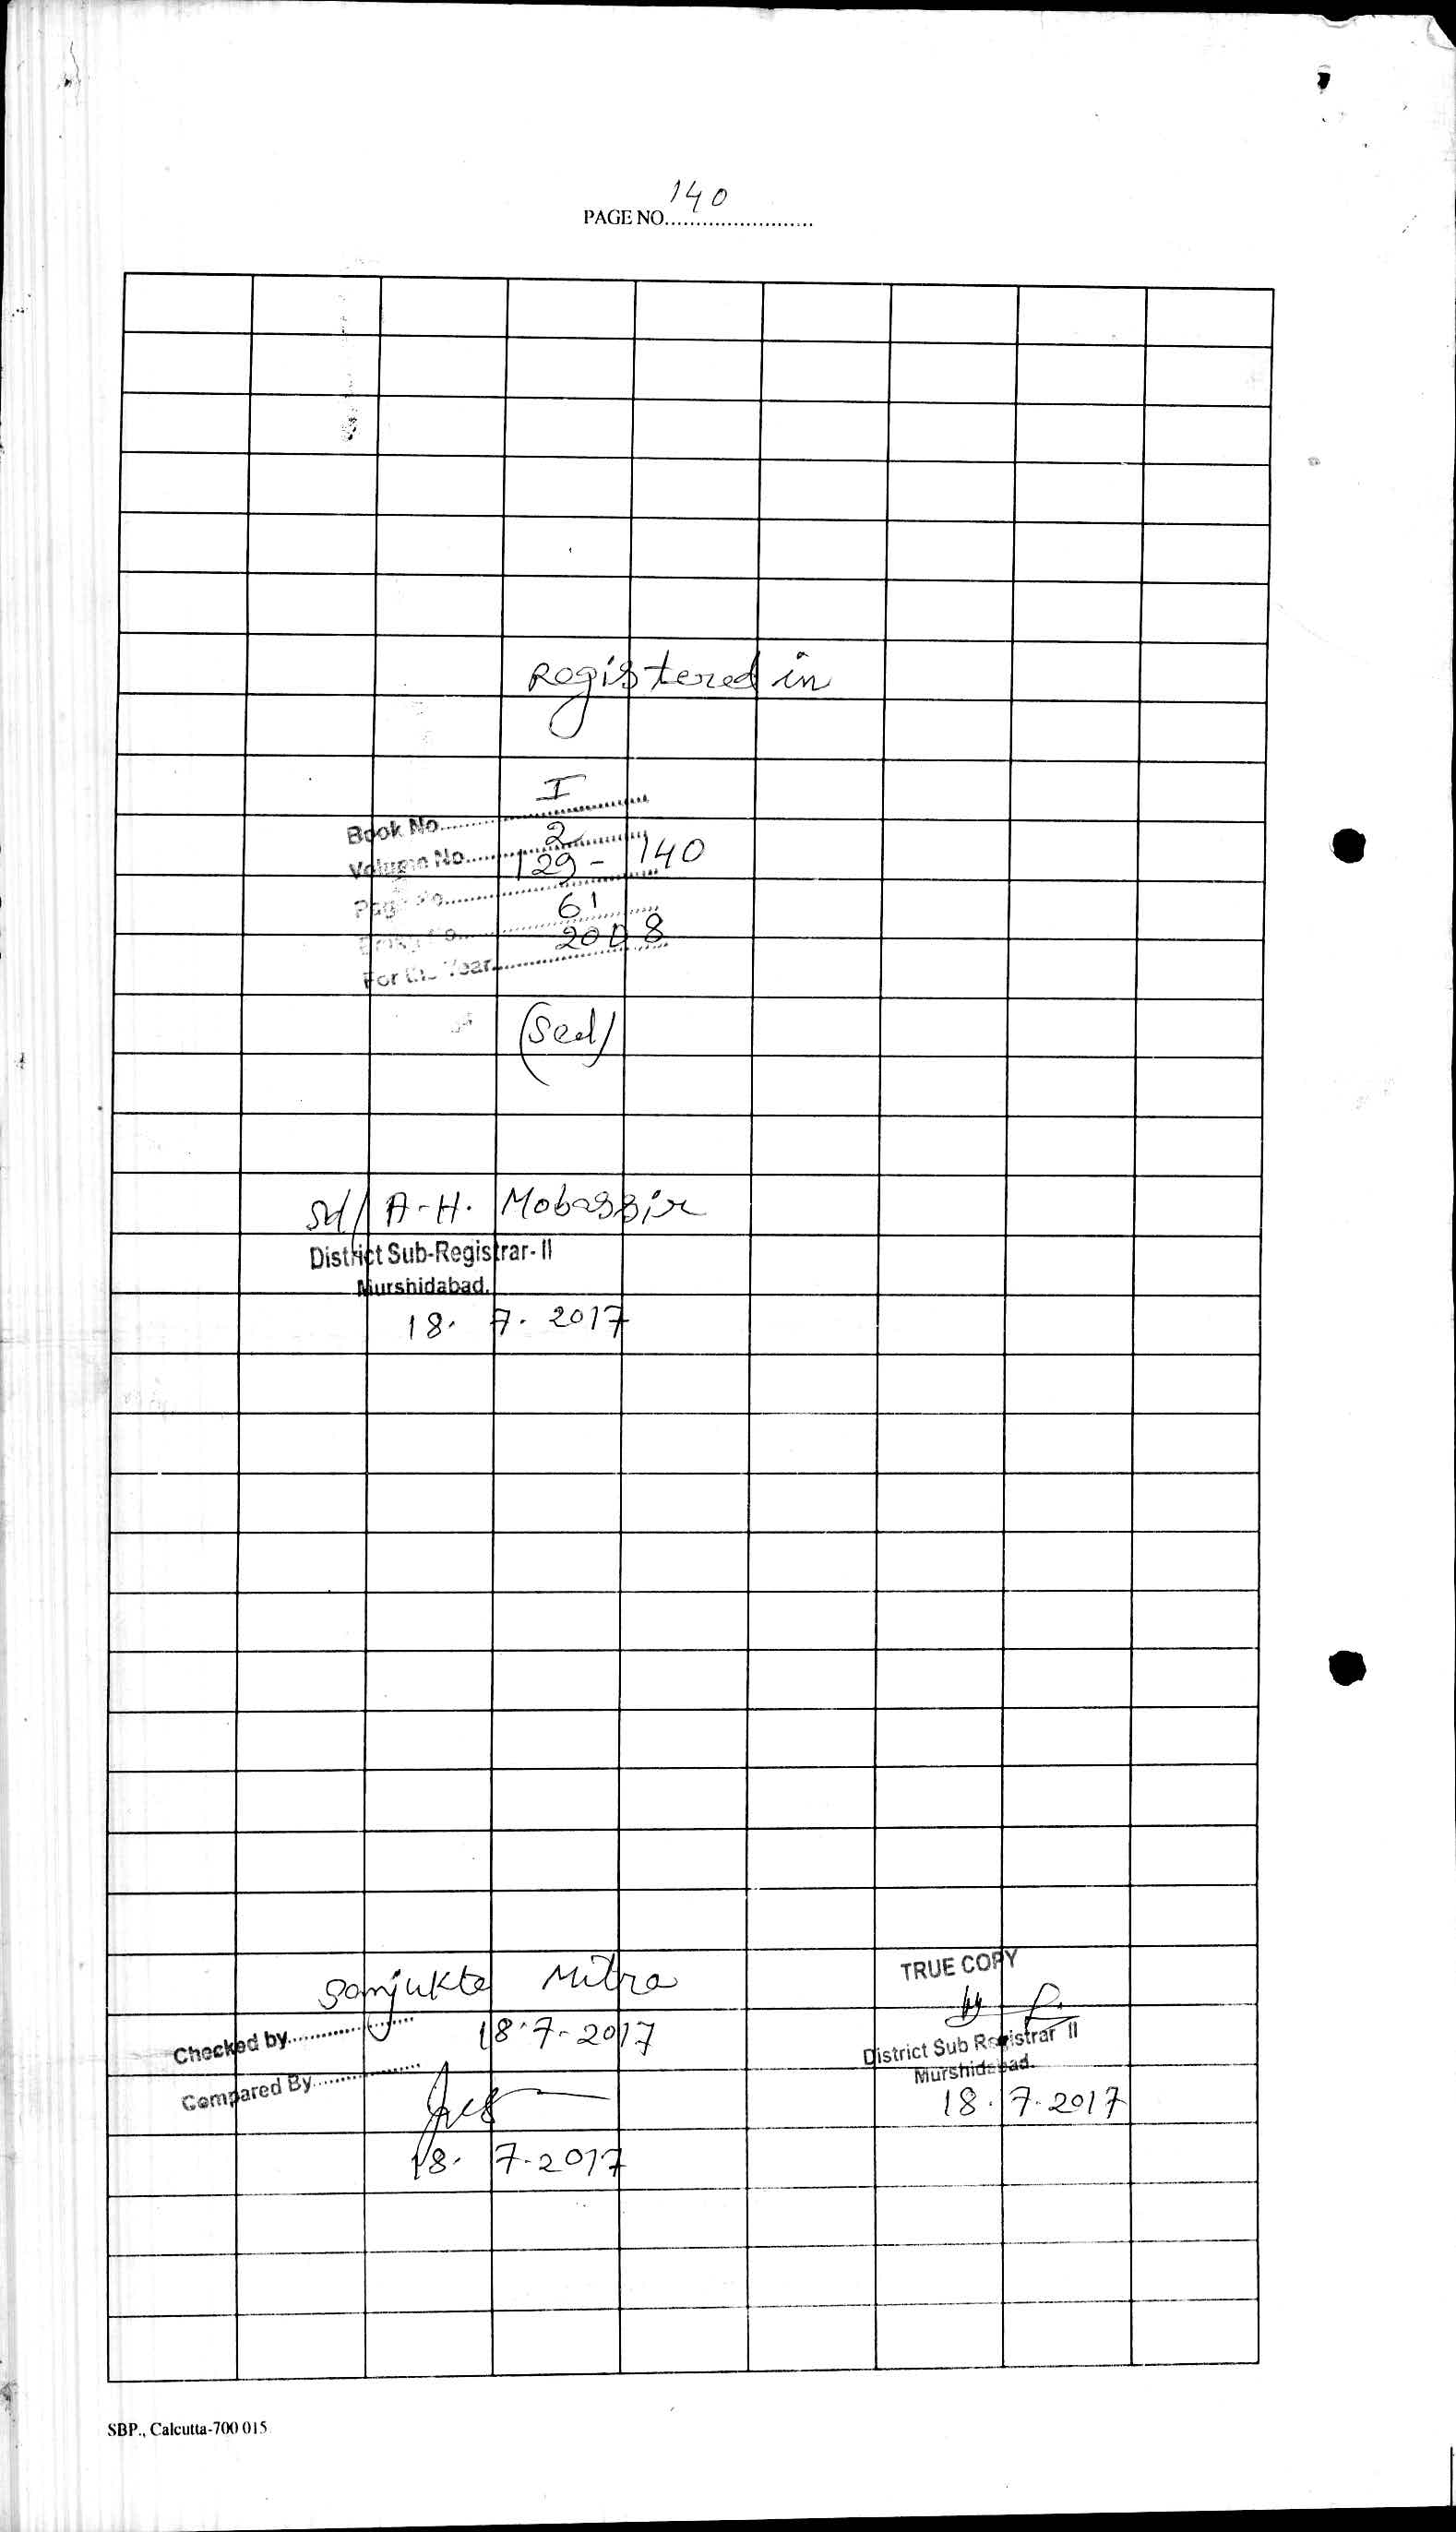 140
PAGE NO.........................
Registered in
Book No............I............
Volume No............2............
Page No............129 - 140
61
For the Year............2008
(Seal)
Sd/ A-H. Mobassir
District Sub-Registrar- II
Murshidabad.
18. 7. 2017
Sanjukta Mitra
Checked by............ 18.7-2017
Compared By............
18. 7-2017
TRUE COPY
District Sub Registrar II
Murshidabad.
18. 7. 2017
SBP., Calcutta-700 015